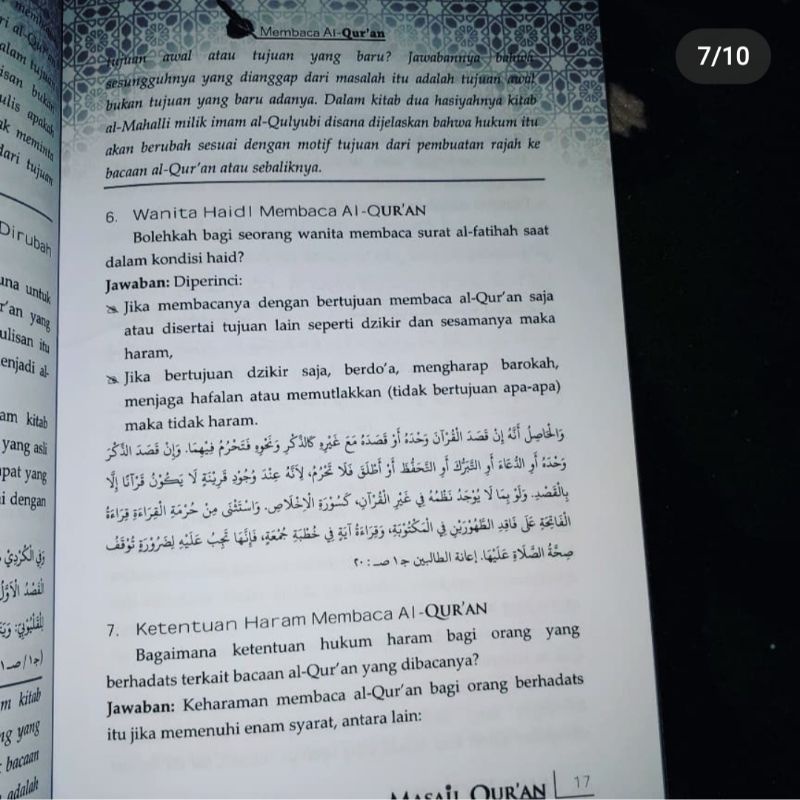 7/10
Membaca Al-Qur'an
tujuan awal atau tujuan yang baru? Jawabannya bahwa
sesungguhnya yang dianggap dari masalah itu adalah tujuan awal
bukan tujuan yang baru adanya. Dalam kitab dua hasiyahnya kitab
al-Mahalli milik imam al-Qulyubi disana dijelaskan bahwa hukum itu
akan berubah sesuai dengan motif tujuan dari pembuatan rajah ke
bacaan al-Qur'an atau sebaliknya.
6. Wanita Haidl Membaca Al-QUR'AN
Bolehkah bagi seorang wanita membaca surat al-fatihah saat
dalam kondisi haid?
Jawaban: Diperinci:
Jika membacanya dengan bertujuan membaca al-Qur'an saja
atau disertai tujuan lain seperti dzikir dan sesamanya maka
haram,
Jika bertujuan dzikir saja, berdo'a, mengharap barokah,
menjaga hafalan atau memutlakkan (tidak bertujuan apa-apa)
maka tidak haram.
وَالْحَاصِلُ أَنَّهُ إِنْ قَصَدَ الْقُرْآنَ وَحْدَهُ أَوْ قَصَدَهُ مَعَ غَيْرِهِ كَالذِّكْرِ وَنَحْوِهِ فَتَحْرُمُ فِيْهِمَا. وَإِنْ قَصَدَ الذِّكْرَ
وَحْدَهُ أَوِ الدُّعَاءَ أَوِ التَّبَرُّكَ أَوِ التَّحَفُّظَ أَوْ أَطْلَقَ فَلَا تَحْرُمُ، لِأَنَّهُ عِنْدَ وُجُوْدِ قَرِيْنَةٍ لَا يَكُوْنُ قُرْآنًا إِلَّا
بِالْقَصْدِ. وَلَوْ بِمَا لَا يُوْجَدُ نَظْمُهُ فِي غَيْرِ الْقُرْآنِ، كَسُوْرَةِ الْإِخْلَاصِ. وَاسْتَثْنَى مِنْ حُرْمَةِ الْقِرَاءَةِ قِرَاءَةُ
الْفَاتِحَةِ عَلَى فَاقِدِ الطَّهُوْرَيْنِ فِي الْمَكْتُوْبَةِ، وَقِرَاءَةُ آيَةٍ فِي خُطْبَةِ جُمُعَةٍ، فَإِنَّهَا تَجِبُ عَلَيْهِ لِضَرُوْرَةِ تَوَقُّفِ
صِحَّةُ الصَّلَاةِ عَلَيْهَا. إعانة الطالبين جـ ١ صـ : ٢٠
7. Ketentuan Haram Membaca Al-QUR'AN
Bagaimana ketentuan hukum haram bagi orang yang
berhadats terkait bacaan al-Qur'an yang dibacanya?
Jawaban: Keharaman membaca al-Qur'an bagi orang berhadats
itu jika memenuhi enam syarat, antara lain:
MASAIL QUR'AN 17